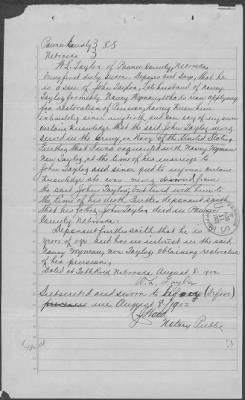 Pierce County } S.S
Nebraska }
W. L. Taylor of Pierce County, Nebraska
being first duly sworn deposes and says, that he
is a son of John Taylor, late husband of Nancy
Taylor formerly Nancy Wyman, who is now applying
for restoration of pension, have known him
intimately ever since my birth, and can say of my own
certain knowledge that the said John Taylor never
served in the Army or Navy of the United States,
further that I was acquainted with Nancy Wyman
now Taylor at the time of her marriage to
John Taylor and since and to my own certain
knowledge she was never divorced from
the said John Taylor but lived with him to
the time of his death. Further deponent saith
that his father John Taylor died in Pierce
County Nebraska.
Deponent further saith that he is
years of age and has no interest in the said
Nancy Wyman now Taylor obtaining restoration
of her pension.
Dated at Nebraska August 8, 1902
W. L. Taylor
Subscribed and sworn to before
me August 8, 1902
Notary Public